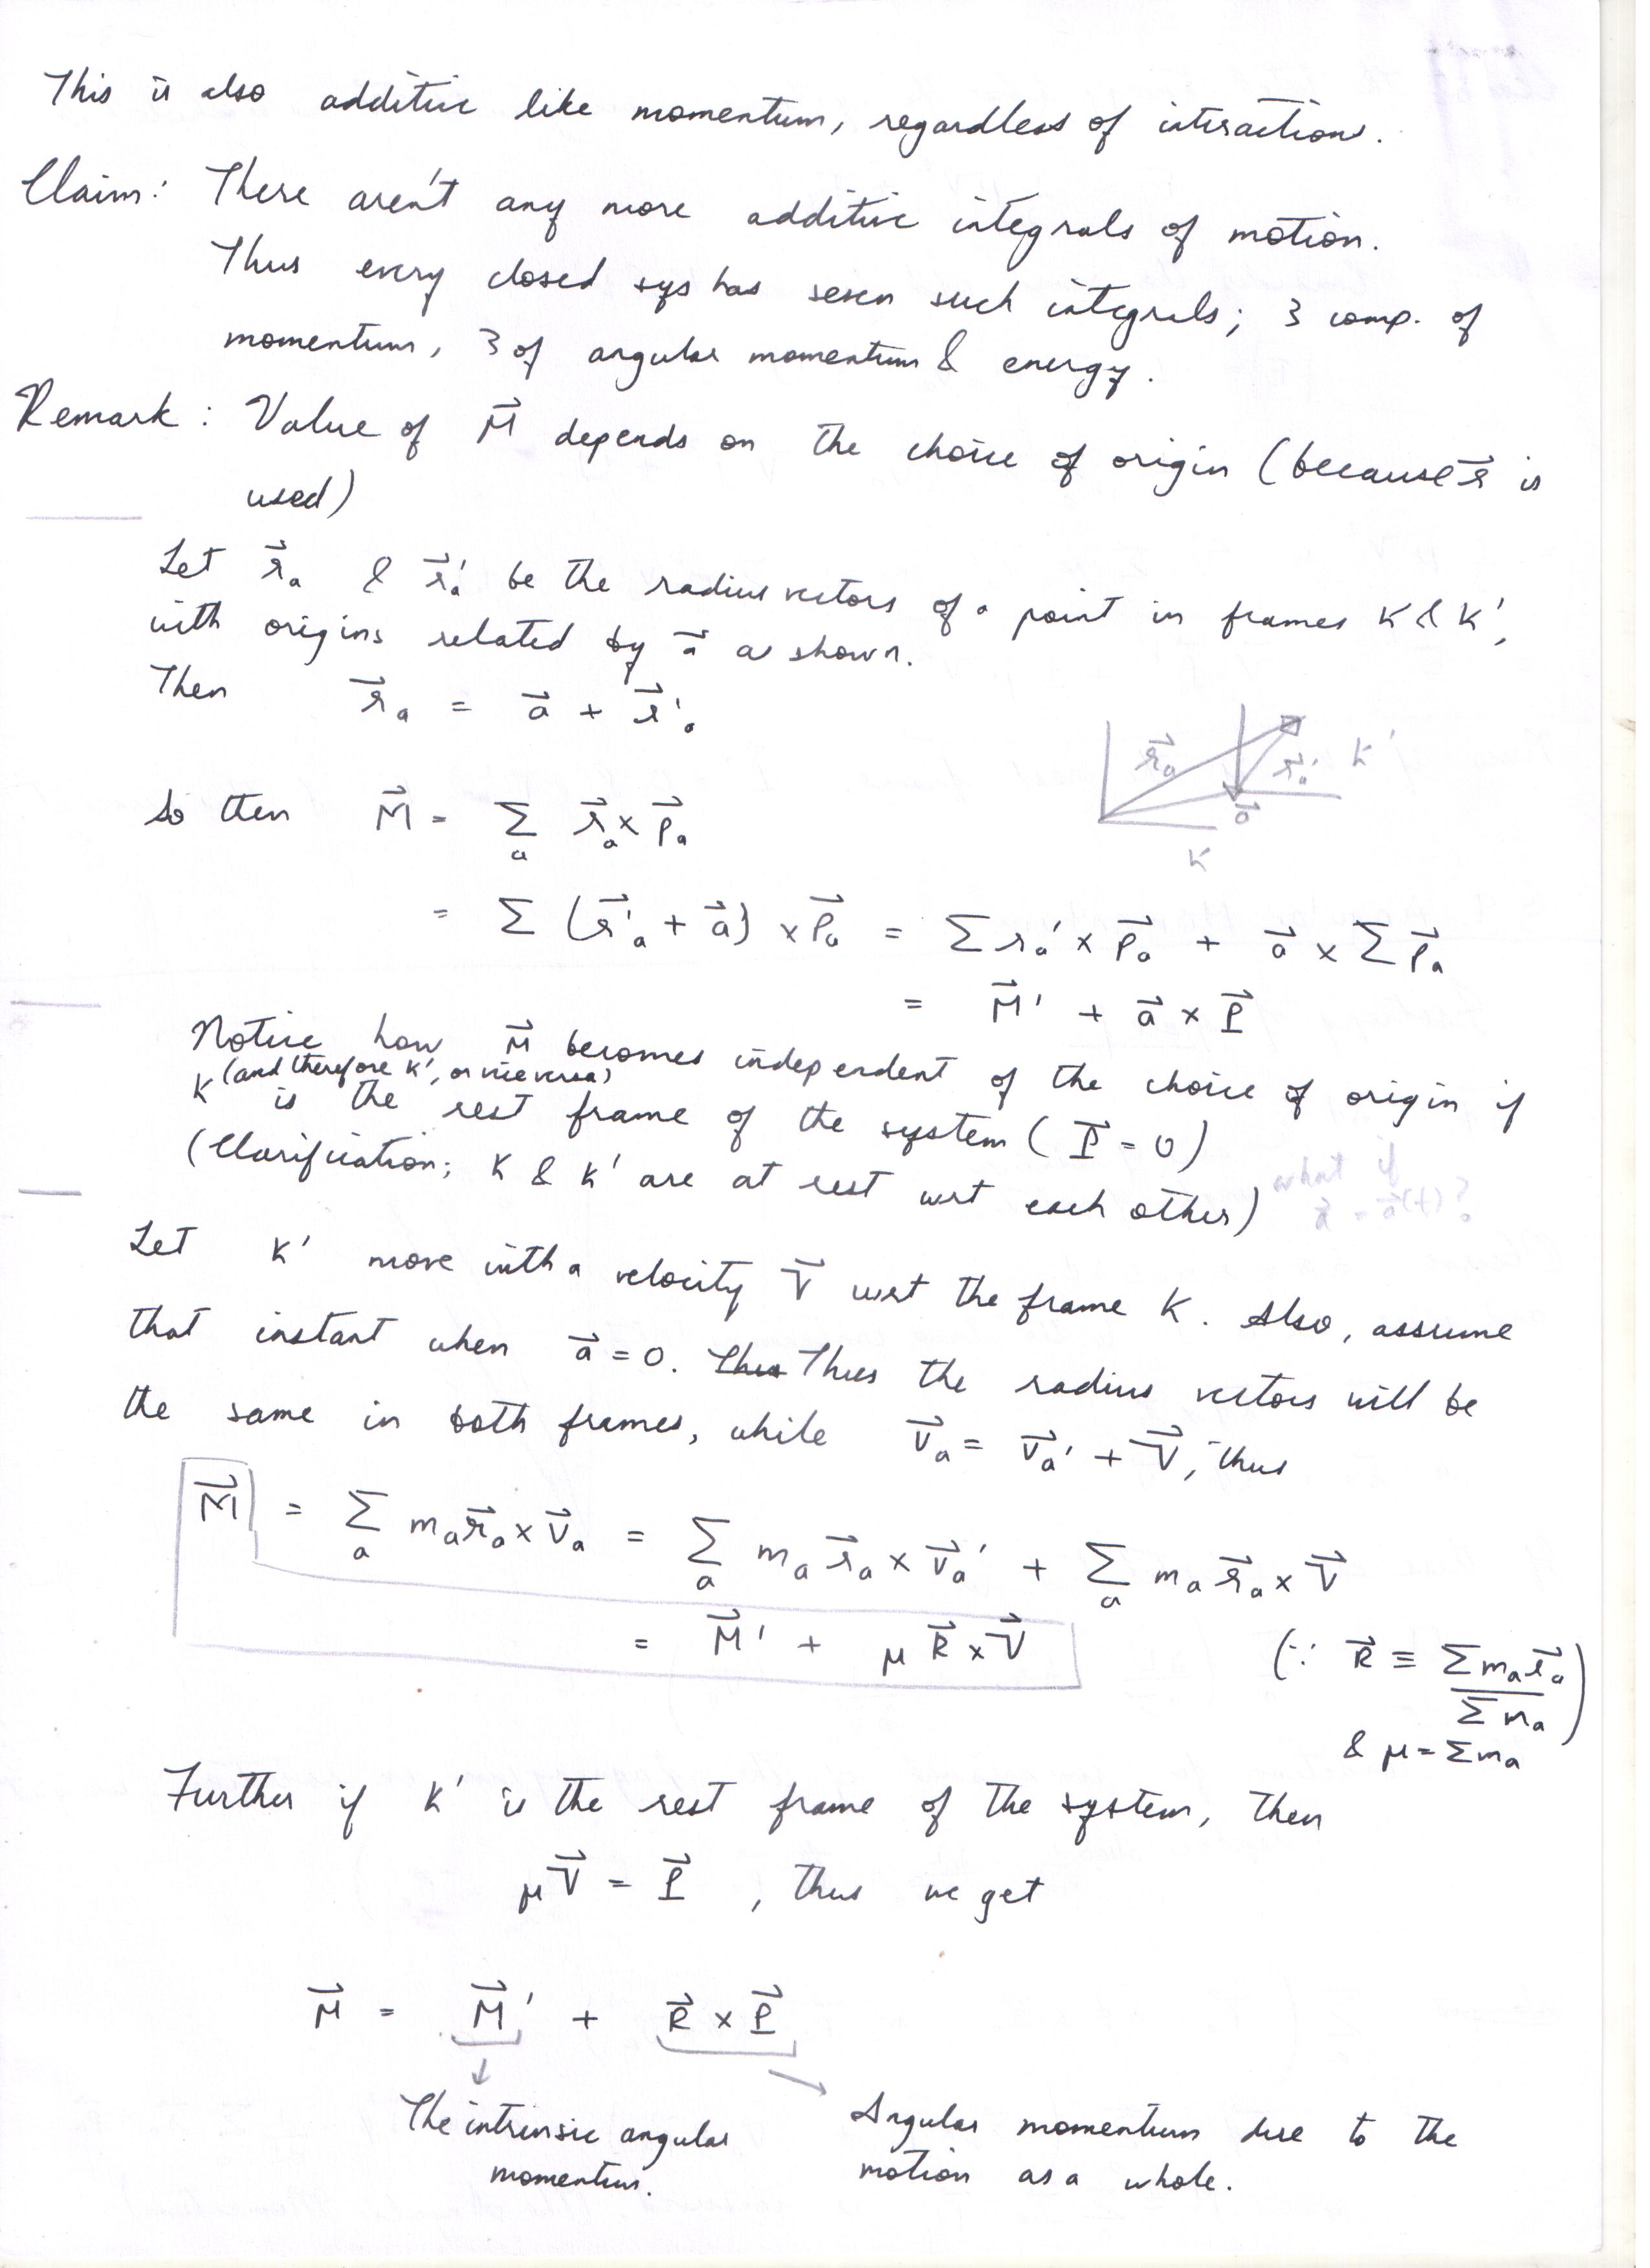 This is also additive like momentum, regardless of interactions.
Claim: There aren't any more additive integrals of motion.
Thus every closed sys has seven such integrals; 3 comp. of
momentum, 3 of angular momentum & energy.
Remark: Value of M⃗ depends on the choice of origin (because r⃗ is
used)
Let r⃗ₐ & r⃗ₐ' be the radius vectors of a point in frames K & K',
with origins related by a⃗ as shown.
Then r⃗ₐ = a⃗ + r⃗'ₐ
r⃗ₐ r⃗ₐ' K'
a⃗
K
So then M⃗ = Σₐ r⃗ₐ × p⃗ₐ
= Σ (r⃗'ₐ + a⃗) × p⃗ₐ = Σ rₐ' × p⃗ₐ + a⃗ × Σ p⃗ₐ
= M⃗' + a⃗ × P⃗
Notice how M⃗ becomes independent of the choice of origin if
K (and therefore K', or vice versa) is the rest frame of the system (P⃗ = 0)
(Clarification; K & K' are at rest wrt each other)
Let K' move with a velocity V⃗ wrt the frame K. Also, assume
that instant when a⃗ = 0. Thus the radius vectors will be
the same in both frames, while v⃗ₐ = v⃗ₐ' + V⃗, thus
M⃗ = Σₐ mₐr⃗ₐ × v⃗ₐ = Σₐ mₐ r⃗ₐ × v⃗ₐ' + Σₐ mₐ r⃗ₐ × V⃗
= M⃗' + μ R⃗ × V⃗ (∵ R⃗ ≡ Σmₐr⃗ₐ / Σmₐ)
& μ = Σmₐ
Further if K' is the rest frame of the system, then
μV⃗ = P⃗ , thus we get
M⃗ = M⃗' + R⃗ × P⃗
The intrinsic angular
momentum.
Angular momentum due to the
motion as a whole.